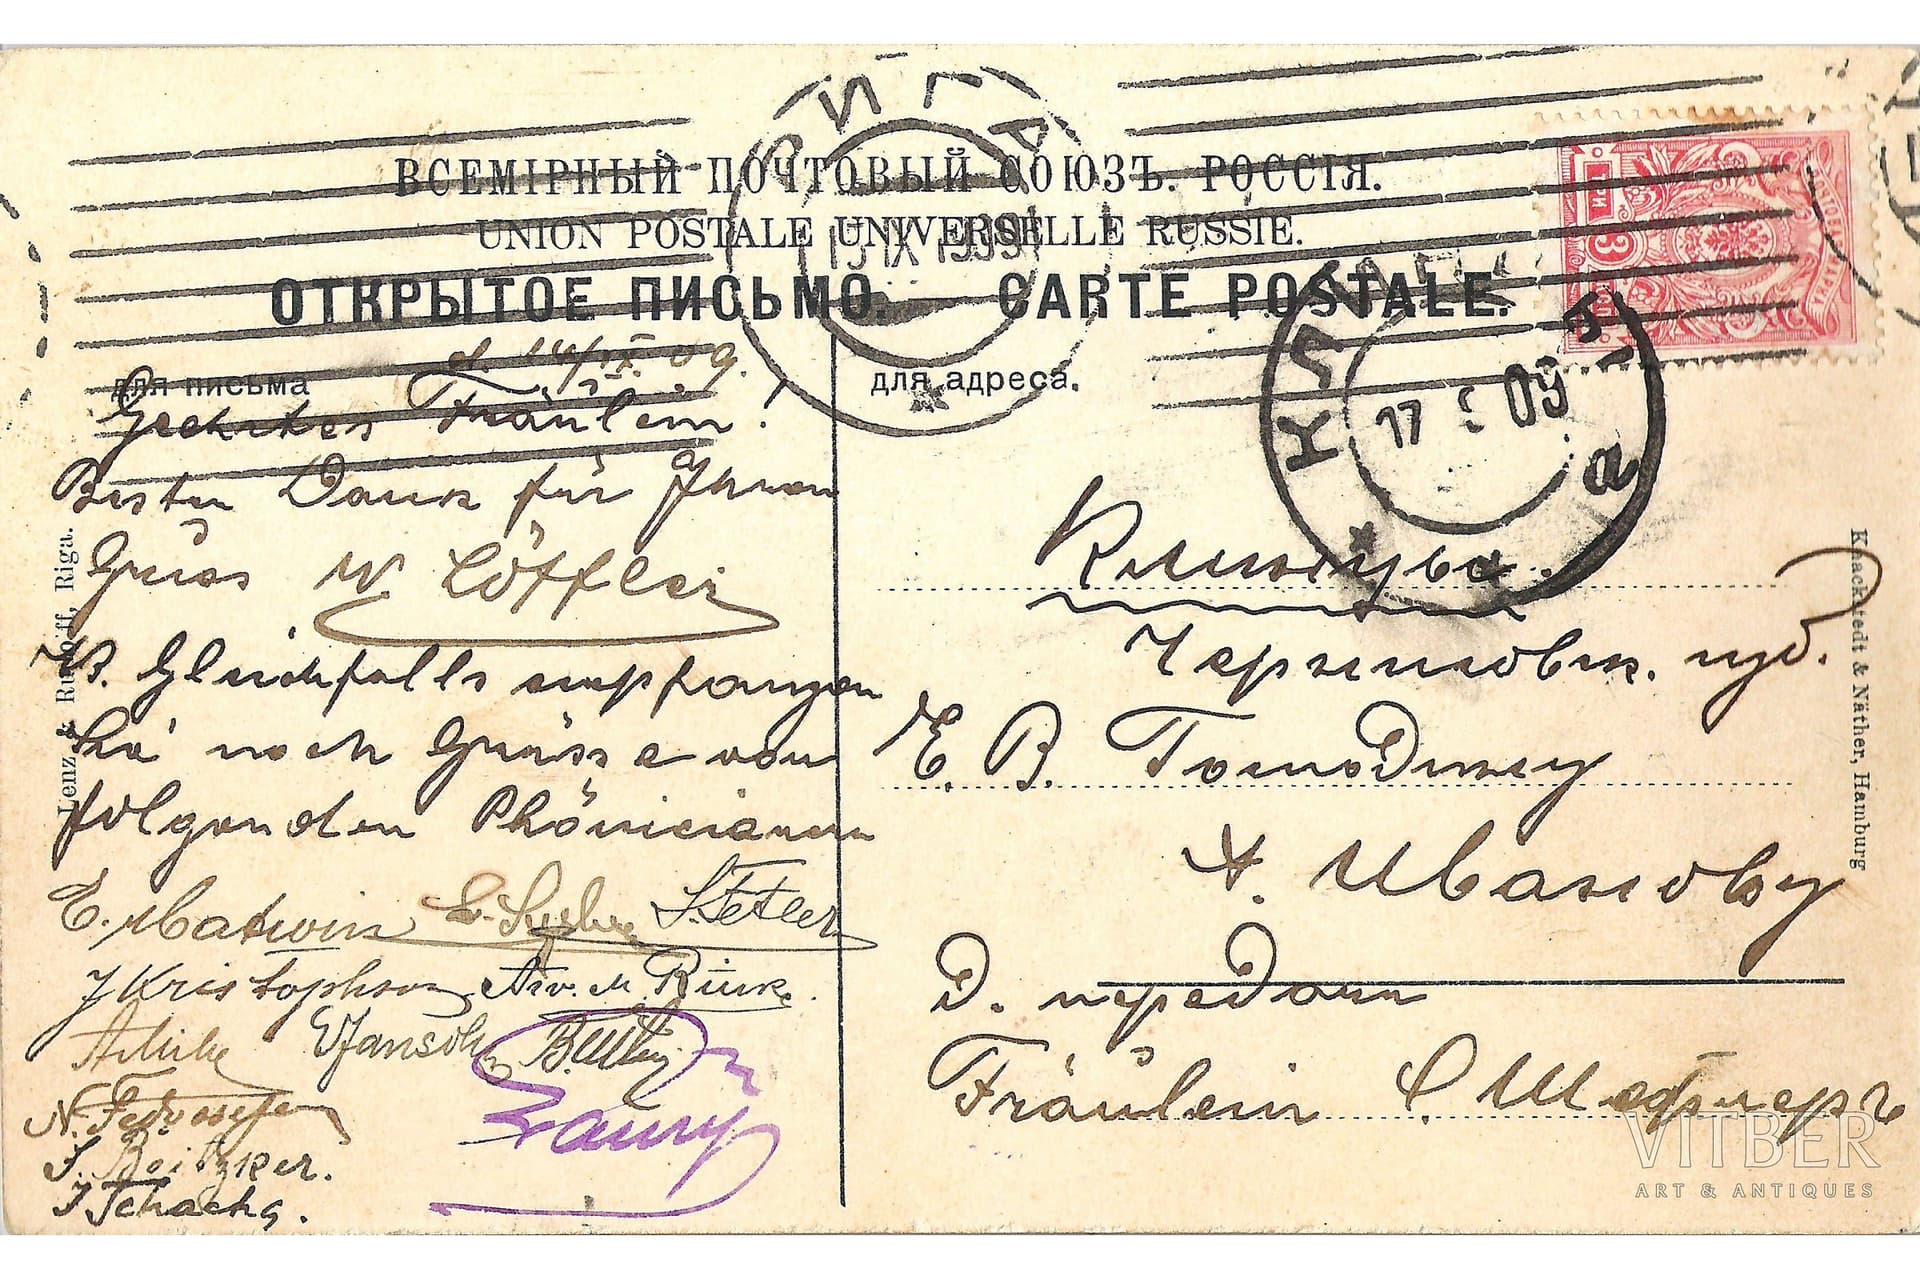 РИГА
15 IX 1909
ВСЕМІРНЫЙ ПОЧТОВЫЙ СОЮЗЪ. РОССІЯ.
UNION POSTALE UNIVERSELLE RUSSIE.
ОТКРЫТОЕ ПИСЬМО. CARTE POSTALE.
ПОЧТОВАЯ МАРКА
3 КОП
17 09
а
для письма
для адреса.
d. 14/IX. 09.
Geehrtes Fräulein!
Besten Dank für Ihren
Gruss W Löffler
NB. Gleichfalls empfangen
Sie noch Grüsse von
folgenden Phönicianern
E. Matwin S. Fetler
J Kristophson Arv. M. Rünk.
E Jansohn
N. Fedossejew
S. Böitzker.
J Schacha.
Клинцы.
Черниговск. губ.
Е. В. Господину
А. Иванову
Д. передачи
Fräulein С. Шефлеръ
Lenz & Rudolff, Riga.
Knackstedt & Näther, Hamburg
VITBER
ART & ANTIQUES